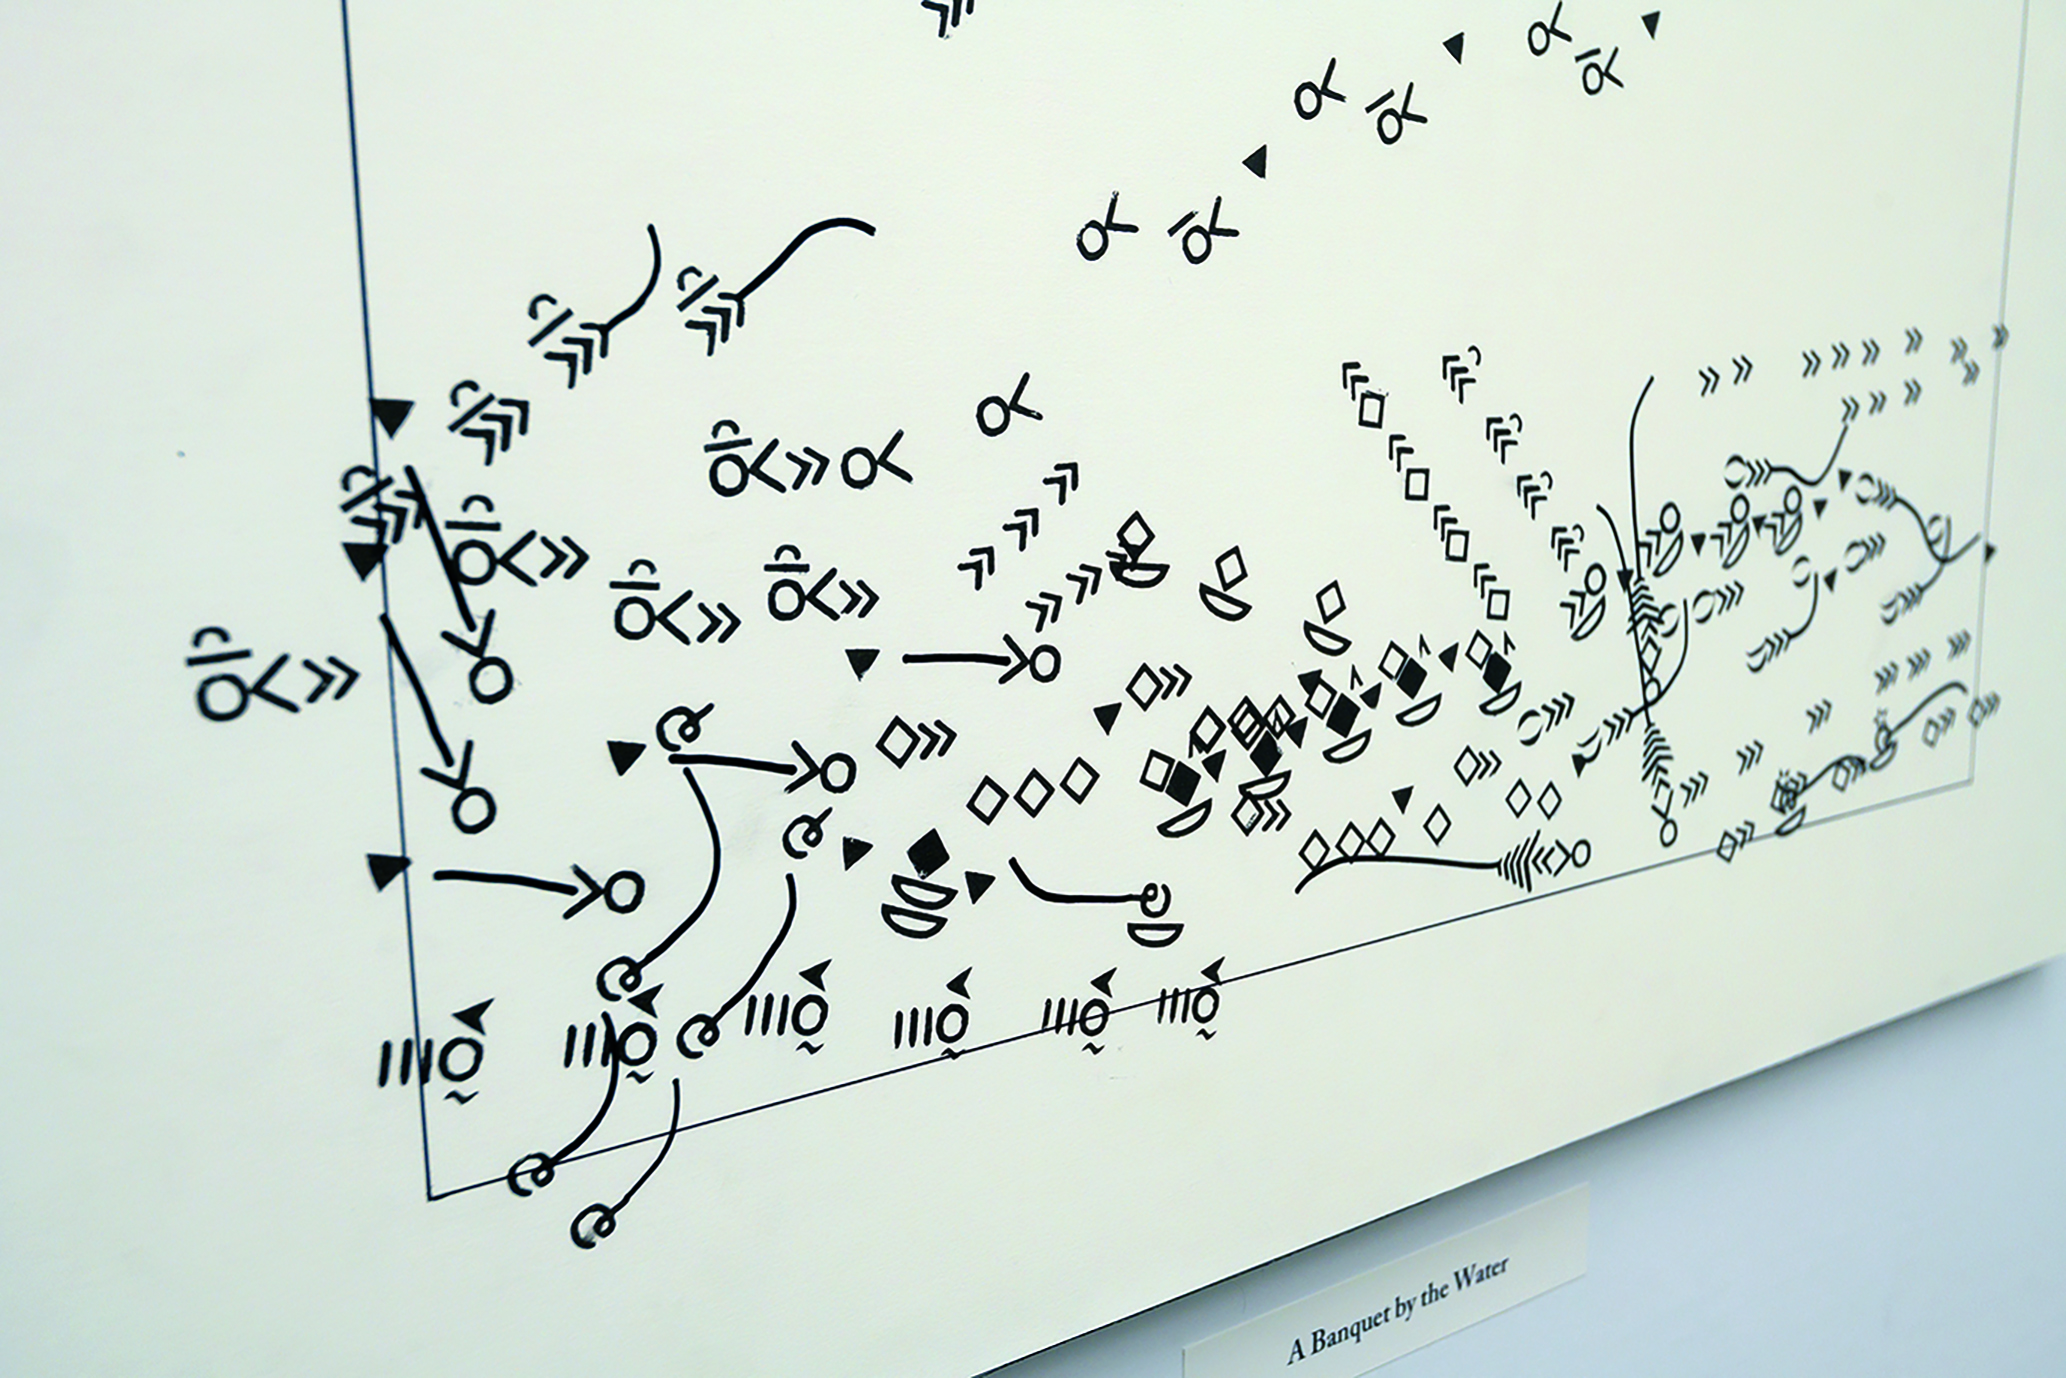 A Banquet by the Water